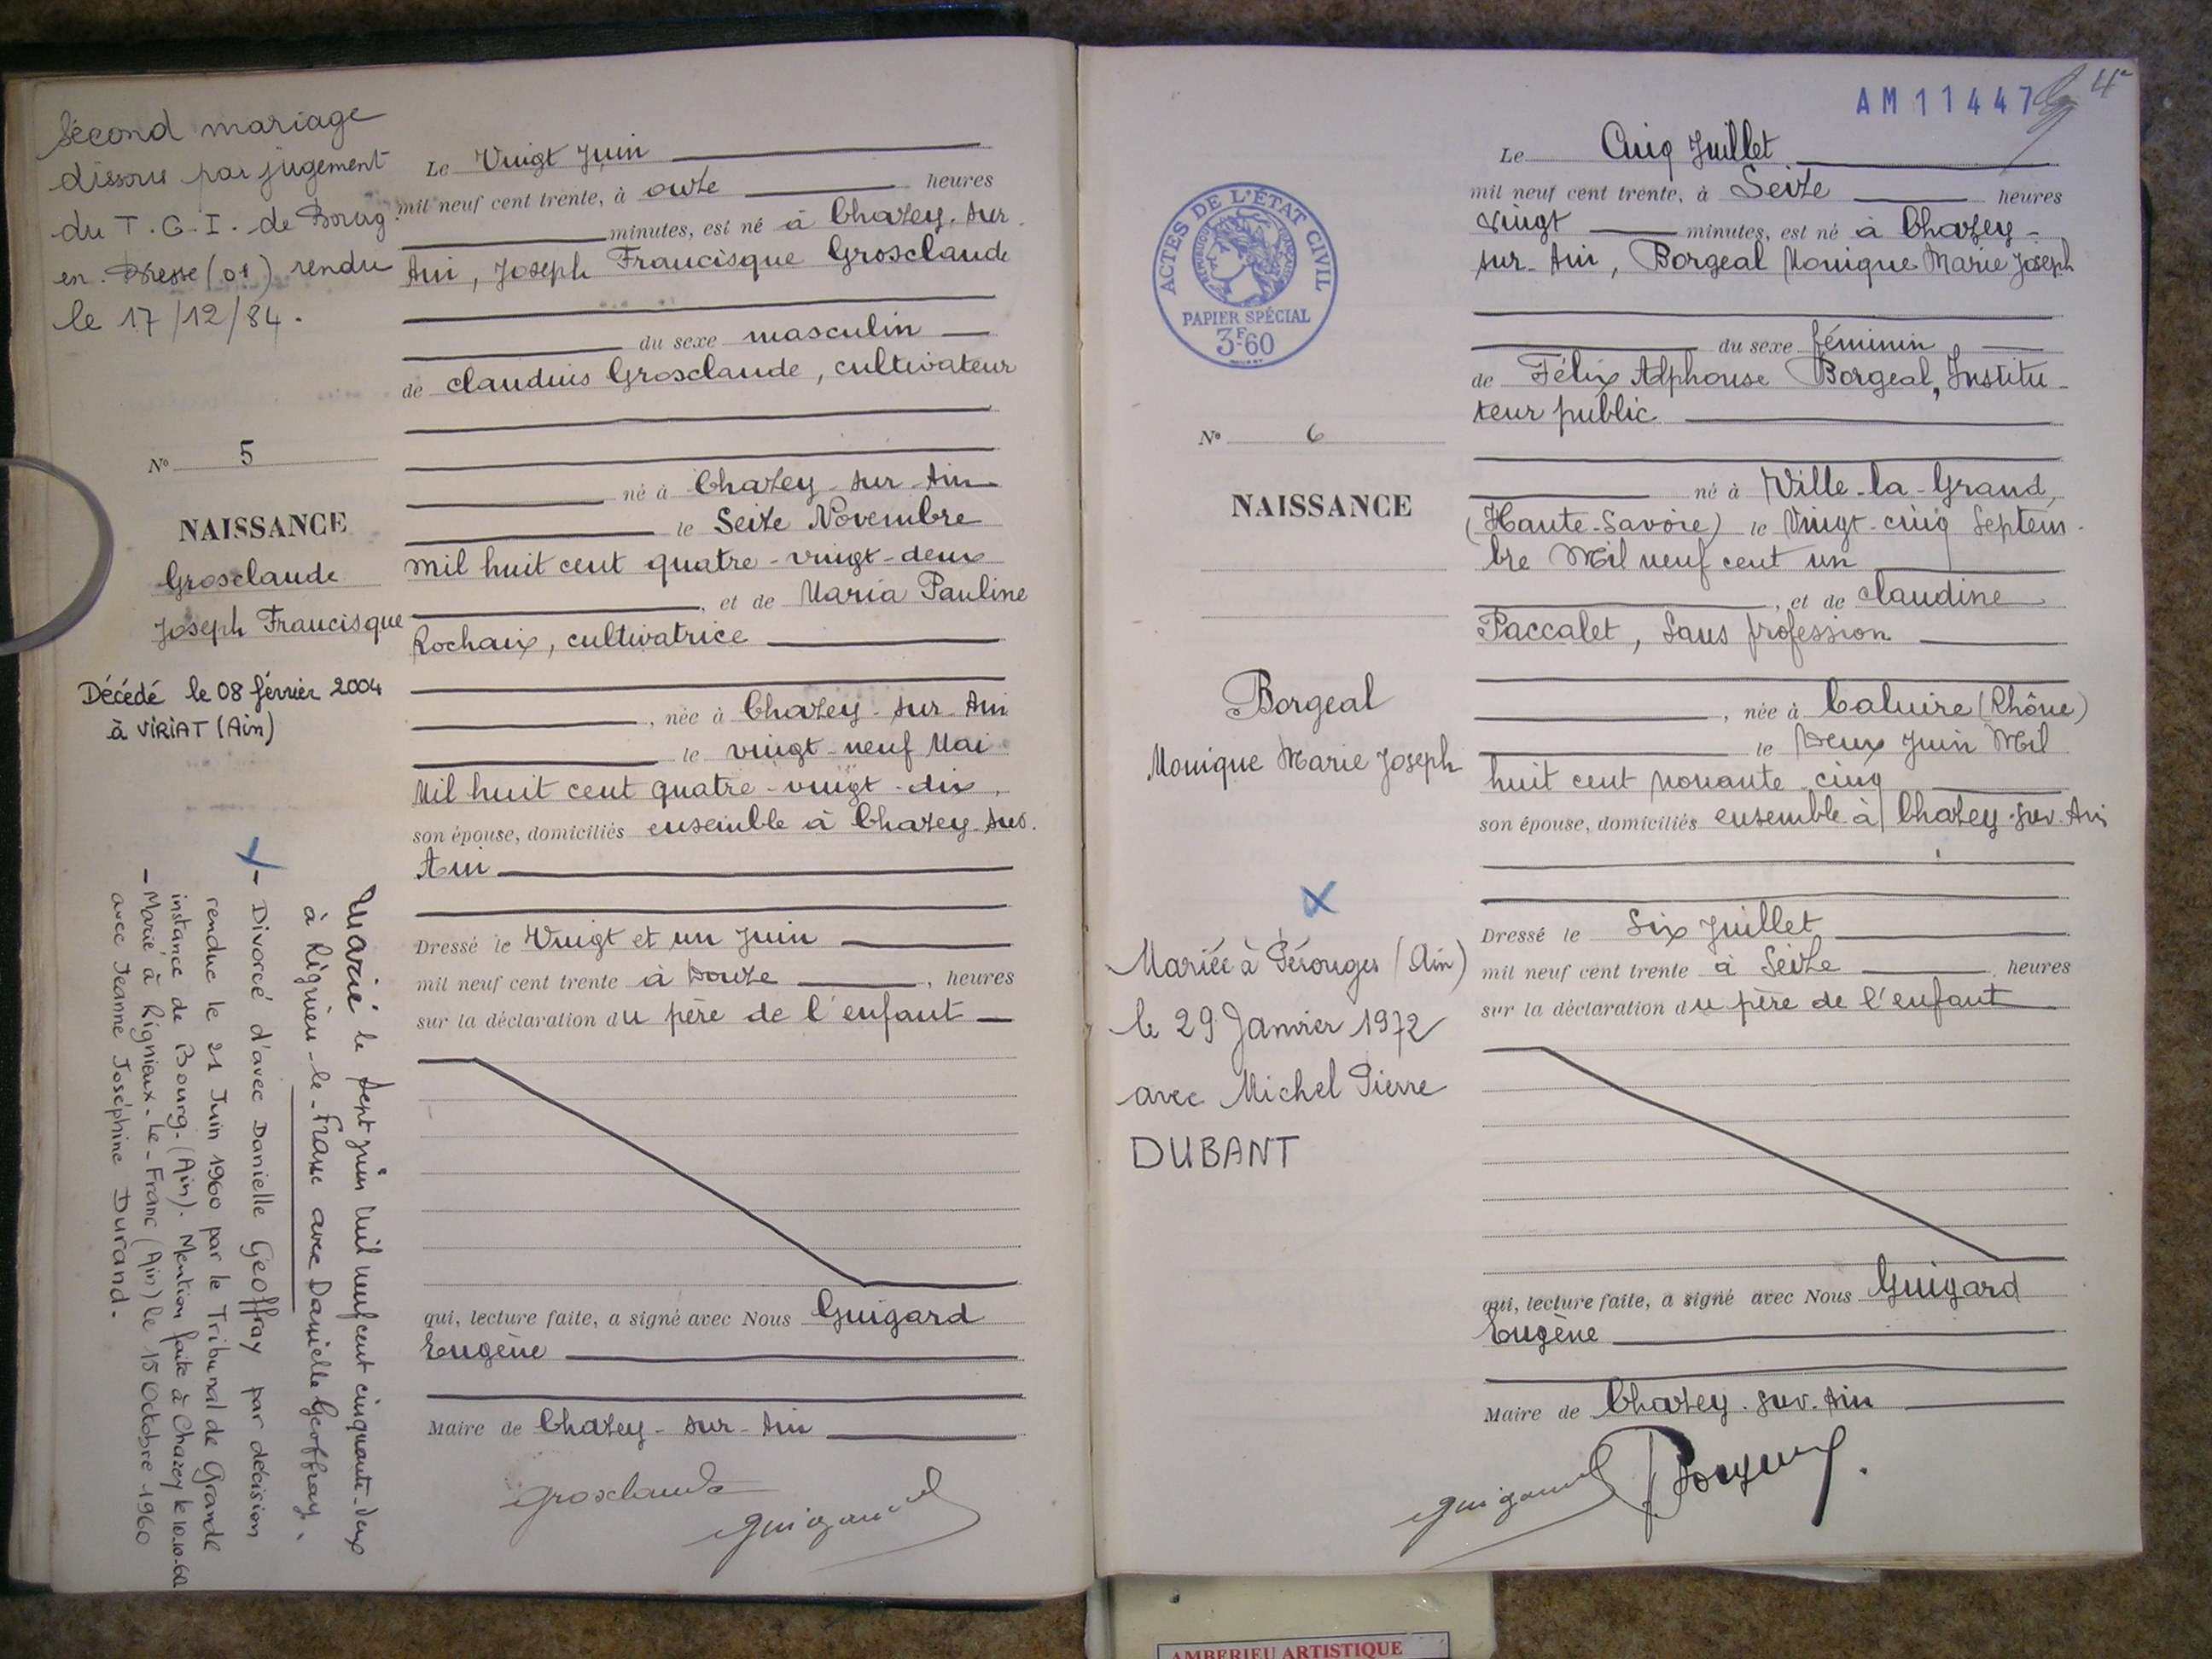 Second mariage
dissous par jugement
du T.G.I. de Bourg
en Bresse (01) rendu
le 17/12/84.
N° 5
NAISSANCE
Grosclaude
Joseph Francisque
Décédé le 08 février 2004
à VIRIAT (Ain)
Marié le sept juin mil neuf cent cinquante-deux
à Rignieu-le-Franc avec Danielle Geoffray.
- Divorcé d'avec Danielle Geoffray par décision
rendue le 21 Juin 1960 par le Tribunal de Grande
instance de Bourg-(Ain). Mention faite à Chazey le 10-10-60
- Marié à Rignieux-le-Franc (Ain) le 15 Octobre 1960
avec Jeanne Joséphine Durand.
Le Vingt Juin
mil neuf cent trente, à onze heures
minutes, est né à Chazey-sur-
Ain, Joseph Francisque Grosclaude
du sexe masculin
de Claudius Grosclaude, cultivateur
né à Chazey-sur-Ain
le Seize Novembre
mil huit cent quatre-vingt-deux
, et de Maria Pauline
Rochaix, cultivatrice
, née à Chazey-sur-Ain
le vingt-neuf Mai
Mil huit cent quatre-vingt-dix,
son épouse, domiciliés ensemble à Chazey-sur-
Ain
Dressé le Vingt et un Juin
mil neuf cent trente à Douze , heures
sur la déclaration du père de l'enfant
qui, lecture faite, a signé avec Nous Guigard
Eugène
Maire de Chazey-sur-Ain
Grosclaude
Guigard
AM 11447
4
ACTES DE L'ÉTAT CIVIL
PAPIER SPÉCIAL
3F60
N° 6
NAISSANCE
Borgeal
Monique Marie Joseph
Mariée à Pérouges (Ain)
le 29 Janvier 1972
avec Michel Pierre
DUBANT
Le Cinq Juillet
mil neuf cent trente, à Seize heures
vingt minutes, est né à Chazey-
sur-Ain, Borgeal Monique Marie Joseph
du sexe féminin
de Félix Alphonse Borgeal, Institu-
teur public
né à Ville-la-Grand,
(Haute-Savoie) le Vingt-cinq Septem-
bre Mil neuf cent un
, et de Claudine
Paccalet, Sans profession
, née à Caluire (Rhône)
le Deux Juin Mil
huit cent nonante-cinq
son épouse, domiciliés ensemble à Chazey-sur-Ain
Dressé le Six Juillet
mil neuf cent trente à Seize , heures
sur la déclaration du père de l'enfant
qui, lecture faite, a signé avec Nous Guigard
Eugène
Maire de Chazey-sur-Ain
Guigard
AMBERIEU ARTISTIQUE